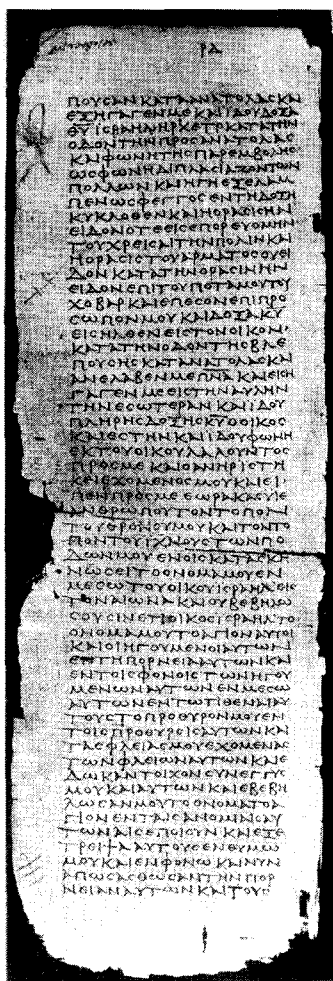 ΠΟΥCΑΝ ΚΑΤΑ ΑΝΑΤΟΛΑC ΚΑΙ
ΕΞΗΓΑΓΕΝ ΜΕ ΚΑΙ ΙΔΟΥ ΔΟΞΑ
ΘΥ ΙCΡΑΗΛ ΗΡΚΕΤΡ ΚΑΤΑ ΤΗΝ
ΟΔΟΝ ΤΗΝ ΠΡΟC ΑΝΑΤΟΛΑC
ΚΑΙ ΦΩΝΗ ΤΗC ΠΑΡΕΜΒΟΛΗC
ΩC ΦΩΝΗ ΔΙΠΛΑCΙΑΖΟΝΤΩΝ
ΠΟΛΛΩΝ ΚΑΙ Η ΓΗ ΕΞΕΛΑΜ
ΠΕΝ ΩC ΦΕΓΓΟC ΕΝ ΤΗ ΔΟΞΗ
ΚΥΚΛΟΘΕΝ ΚΑΙ Η ΟΡΑCΙC ΗΝ
ΕΙΔΟΝ ΟΤΕ ΕΙCΕΠΟΡΕΥΟΜΗΝ
ΤΟΥ ΧΡΕΙCΑΙ ΤΗΝ ΠΟΛΙΝ ΚΑΙ
Η ΟΡΑCΙC ΤΟΥ ΑΡΜΑΤΟC ΟΥ ΕΙ
ΔΟΝ ΚΑΤΑ ΤΗΝ ΟΡΑCΙΝ ΗΝ
ΕΙΔΟΝ ΕΠΙ ΤΟΥ ΠΟΤΑΜΟΥ ΤΟΥ
ΧΟΒΑΡ ΚΑΙ ΕΠΕCΟΝ ΕΠΙ ΠΡΟ
CΩΠΟΝ ΜΟΥ ΚΑΙ ΔΟΞΑ ΚΥ
ΕΙCΗΛΘΕΝ ΕΙC ΤΟΝ ΟΙΚΟΝ
ΚΑΤΑ ΤΗΝ ΟΔΟΝ ΤΗC ΒΛΕ
ΠΟΥCΗC ΚΑΤΑ ΝΑΤΟΛΑC ΚΑΙ
ΑΝΕΛΑΒΕΝ ΜΕ ΠΝΑ ΚΑΙ ΕΙCΗ
ΓΑΓΕΝ ΜΕ ΕΙC ΤΗΝ ΑΥΛΗΝ
ΤΗΝ ΕCΩΤΕΡΑΝ ΚΑΙ ΙΔΟΥ
ΠΛΗΡΗC ΔΟΞΗC ΚΥ Ο ΟΙΚΟC
ΚΑΙ ΕCΤΗΝ ΚΑΙ ΙΔΟΥ ΦΩΝΗ
ΕΚ ΤΟΥ ΟΙΚΟΥ ΛΑΛΟΥΝΤΟC
ΠΡΟC ΜΕ ΚΑΙ Ο ΑΝΗΡ ΙCΤΗ
ΚΕΙ ΕΧΟΜΕΝΟC ΜΟΥ ΚΑΙ ΕΙ
ΠΕΝ ΠΡΟC ΜΕ ΕΩΡΑΚΑC ΥΙΕ
ΑΝΘΡΩΠΟΥ ΤΟΝ ΤΟΠΟΝ
ΤΟΥ ΘΡΟΝΟΥ ΜΟΥ ΚΑΙ ΤΟΝ ΤΟ
ΠΟΝ ΤΟΥ ΙΧΝΟΥC ΤΩΝ ΠΟ
ΔΩΝ ΜΟΥ ΕΝ ΟΙC ΚΑΤΑCΚΗ
ΝΩCΕΙ ΤΟ ΟΝΟΜΑ ΜΟΥ ΕΝ
ΜΕCΩ ΤΟΥ ΟΙΚΟΥ ΙCΡΑΗΛ ΕΙC
ΤΟΝ ΑΙΩΝΑ ΚΑΙ ΟΥ ΒΕΒΗΛΩ
CΟΥCΙΝ ΕΤΙ ΟΙΚΟC ΙCΡΑΗΛ ΤΟ
ΟΝΟΜΑ ΜΟΥ ΤΟ ΑΓΙΟΝ ΑΥΤΟΙ
ΚΑΙ ΟΙ ΗΓΟΥΜΕΝΟΙ ΑΥΤΩΝ
ΕΝ ΤΗ ΠΟΡΝΕΙΑ ΑΥΤΩΝ ΚΑΙ
ΕΝ ΤΟΙC ΦΟΝΟΙC ΤΩΝ ΗΓΟΥ
ΜΕΝΩΝ ΑΥΤΩΝ ΕΝ ΜΕCΩ
ΑΥΤΩΝ ΕΝ ΤΩ ΤΙΘΕΝΑΙ ΑΥ
ΤΟΥC ΤΟ ΠΡΟΘΥΡΟΝ ΜΟΥ ΕΝ
ΤΟΙC ΠΡΟΘΥΡΕΙC ΑΥΤΩΝ ΚΑΙ
ΤΑC ΦΛΕΙΑC ΜΟΥ ΕΧΟΜΕΝΑC
ΤΩΝ ΦΛΕΙΩΝ ΑΥΤΩΝ ΚΑΙ Ε
ΔΩΚΑΝ ΤΟΙΧΟΝ CΥΝΕΓΓΥC
ΜΟΥ ΚΑΙ ΑΥΤΩΝ ΚΑΙ ΕΒΕΒΗ
ΛΩCΑΝ ΜΟΥ ΤΟ ΟΝΟΜΑ ΤΟ Α
ΓΙΟΝ ΕΝ ΤΑΙC ΑΝΟΜΙΑΙC ΑΥ
ΤΩΝ ΑΙC ΕΠΟΙΟΥΝ ΚΑΙ ΕΞΕ
ΤΡΕΙΨΑ ΑΥΤΟΥC ΕΝ ΘΥΜΩ
ΜΟΥ ΚΑΙ ΕΝ ΦΟΝΩ ΚΑΙ ΝΥΝ
ΑΠΩCΑCΘΩCΑΝ ΤΗΝ ΠΟΡ
ΝΕΙΑΝ ΑΥΤΩΝ ΚΑΙ ΤΟΥC